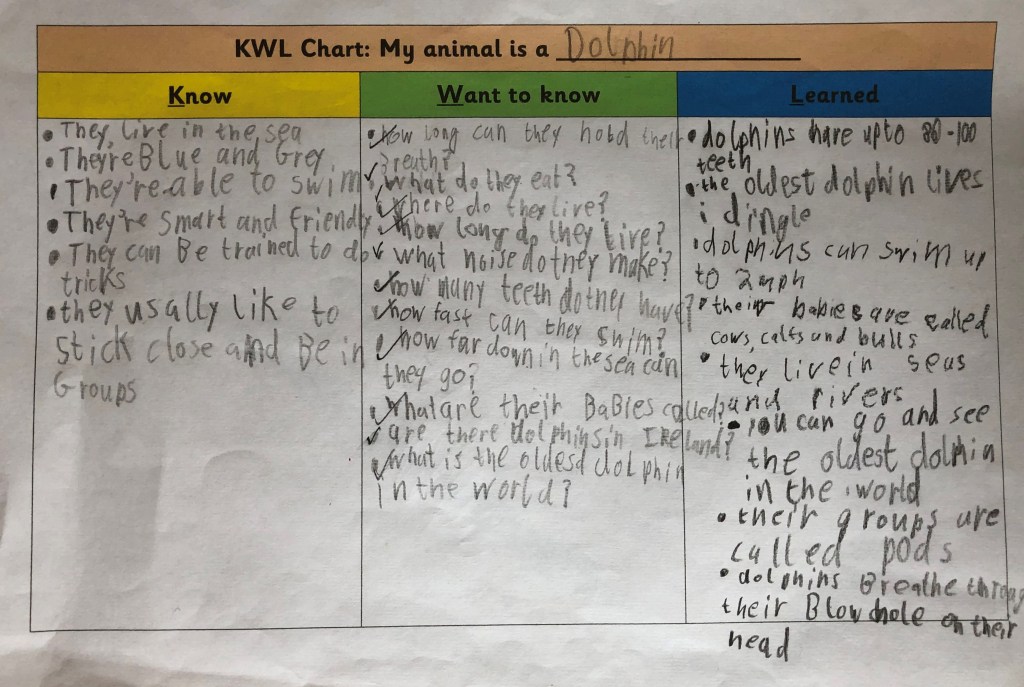 KWL Chart: My animal is a Dolphin
Know
• They live in the sea
• They're Blue and Grey
• They're able to swim
• They're Smart and friendly
• They can Be trained to do
tricks
• they usally like to
stick close and Be in
Groups
Want to know
• How long can they hobd their
Breath?
✓ What do they eat?
✓ Where do they live?
✓ how long do they live?
✓ what noise do they make?
✓ how many teeth do they have?
✓ how fast can they swim?
✓ how far down in the sea can
they go?
✓ What are their BaBies called?
✓ are there dolphins in IReland?
✓ What is the oldesd dolphin
in the world?
Learned
• dolphins have upto 80-100
teeth
• the oldest dolphin lives
i dingle
• dolphins can swim up
to 2mph
• their babies are called
cows, calfs and bulls
• they live in seas
and rivers
• you can go and see
the oldest dolphin
in the world
• their groups are
called pods
• dolphins Breathe throug
their Blow hole on their
head